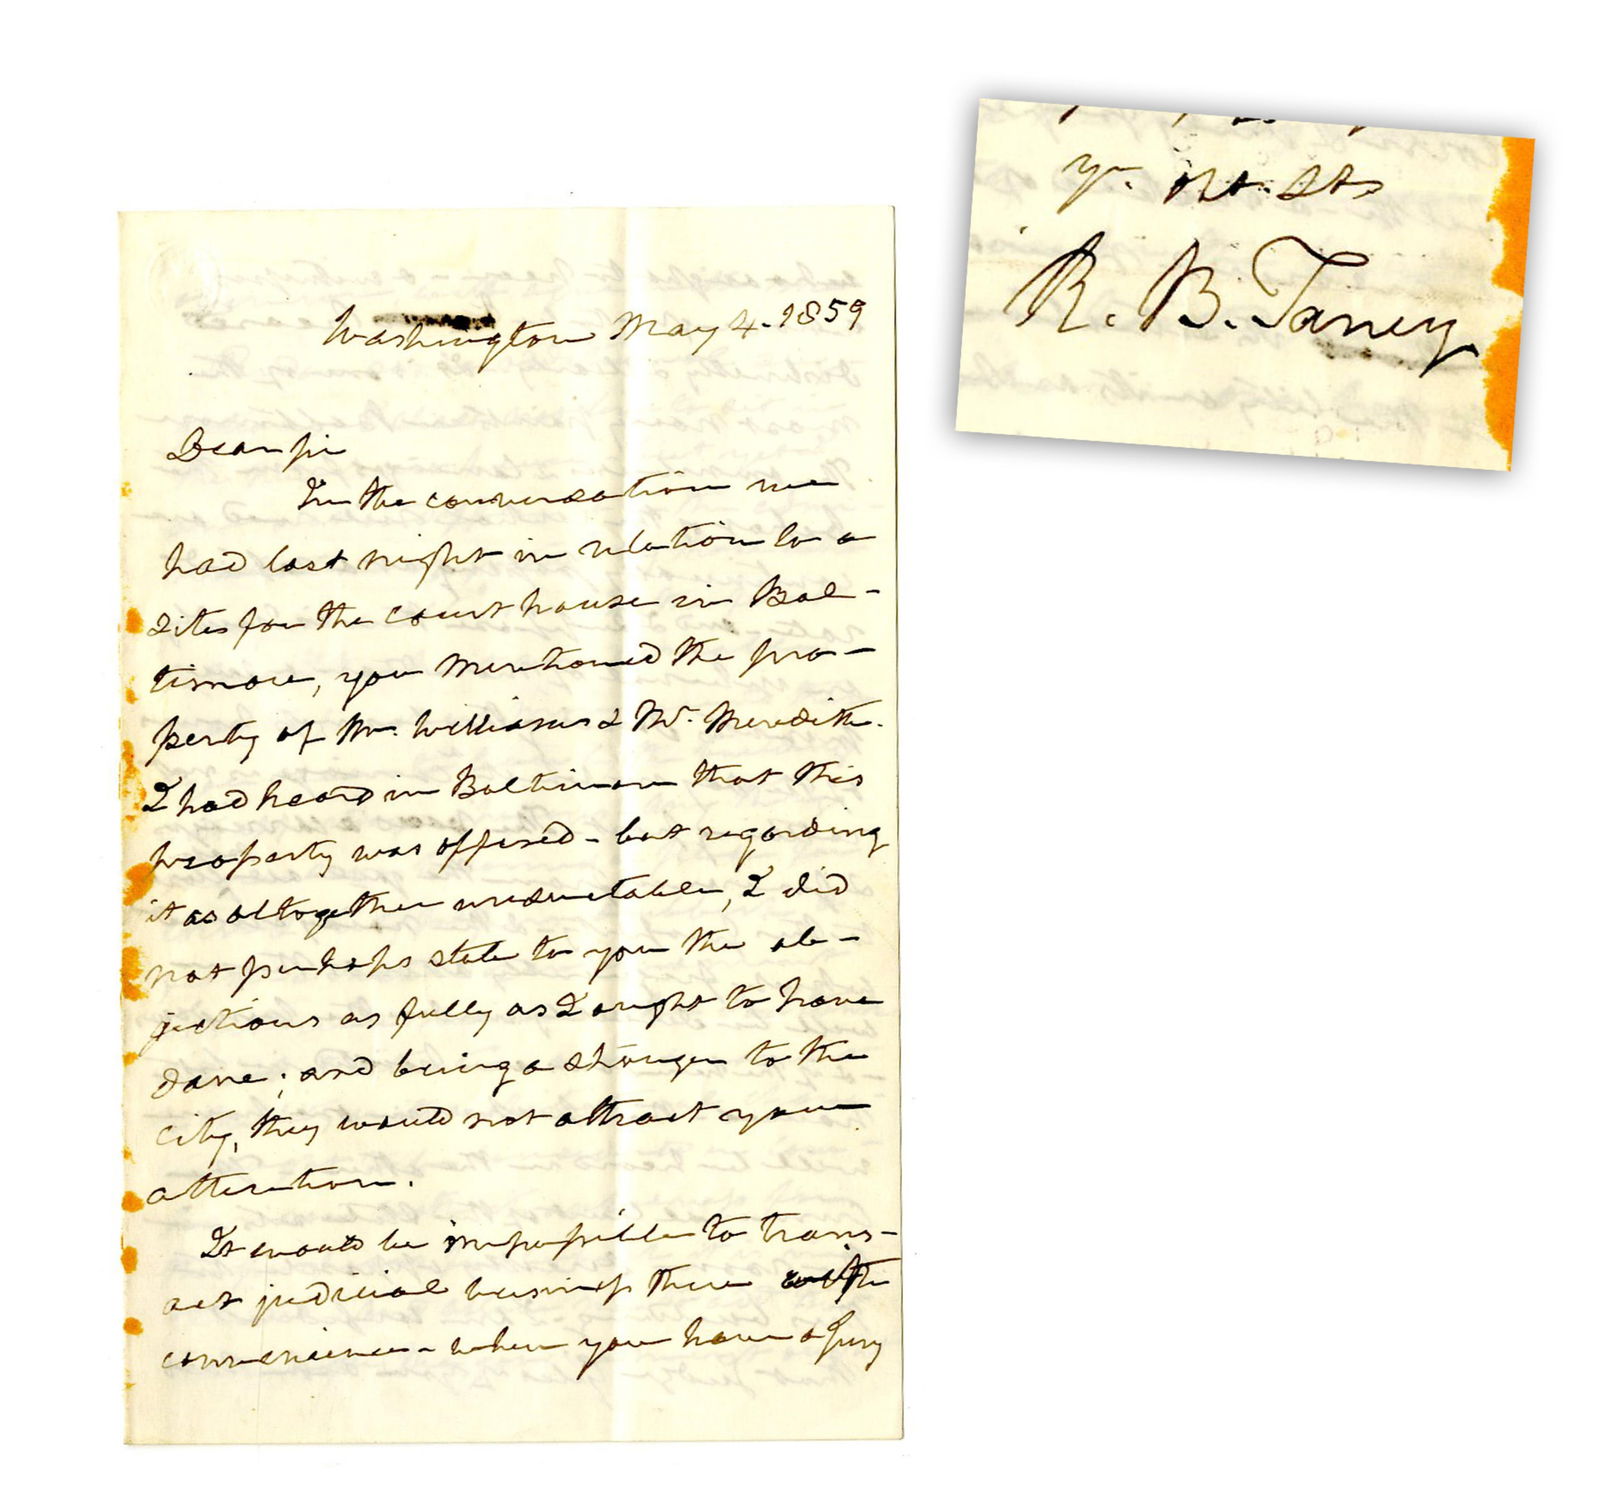 Washington May 4. 1859
Dear Sir
In the conversation we
had last night in relation to a
site for the court house in Bal-
timore, you mentioned the pro-
perty of Mr. Williams & Mr. Meredith.
I had heard in Baltimore that this
property was offered - but regarding
it as altogether unsuitable, I did
not perhaps state to you the ob-
jections as fully as I ought to have
done; and being a stranger to the
city, they would not attract your
attention.
It would be impossible to trans-
act judicial business there with
convenience - when you have a Jury
yr. obt. St.
R. B. Taney